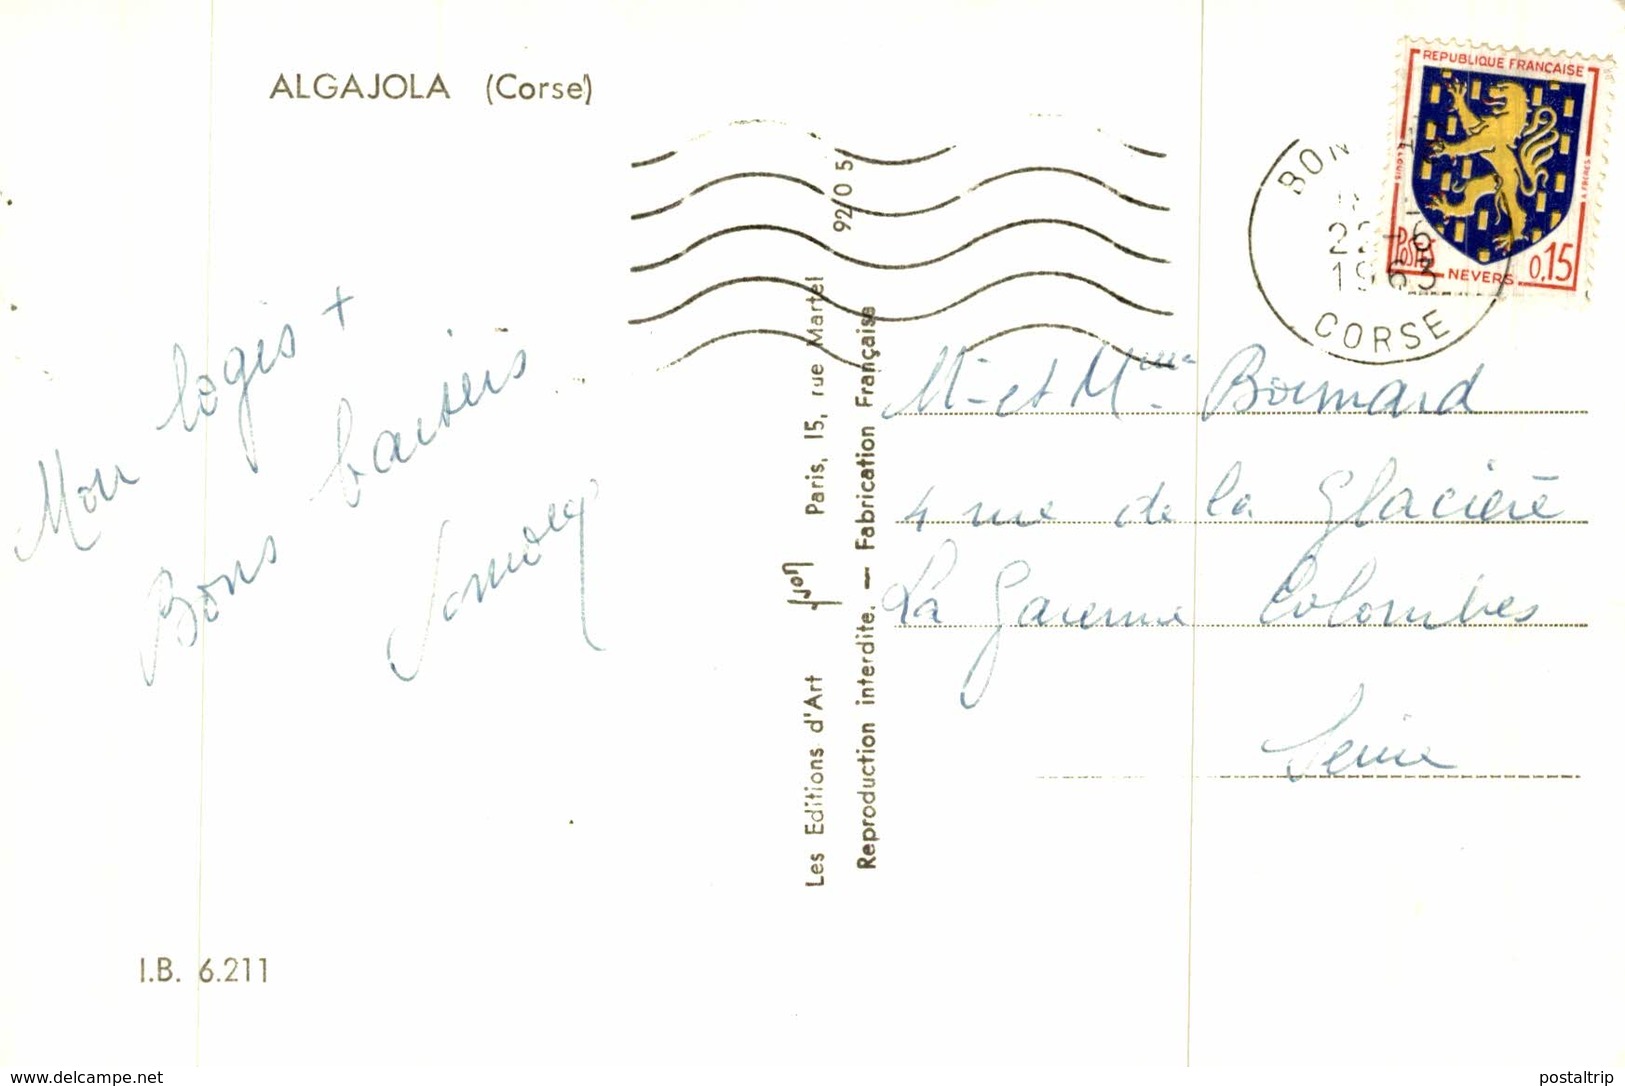 ALGAJOLA (Corse)
Mon logis +
Bons baisers
I.B. 6.211
Les Editions d'Art yvon Paris, 15, rue Martel 92/0 5
Reproduction interdite. — Fabrication Française
REPUBLIQUE FRANÇAISE
POSTES
NEVERS 0,15
BON
22-6
1963
CORSE
Mr et Mme
4 rue de la Glacière
La Garenne Colombes
Seine
www.delcampe.net
postaltrip